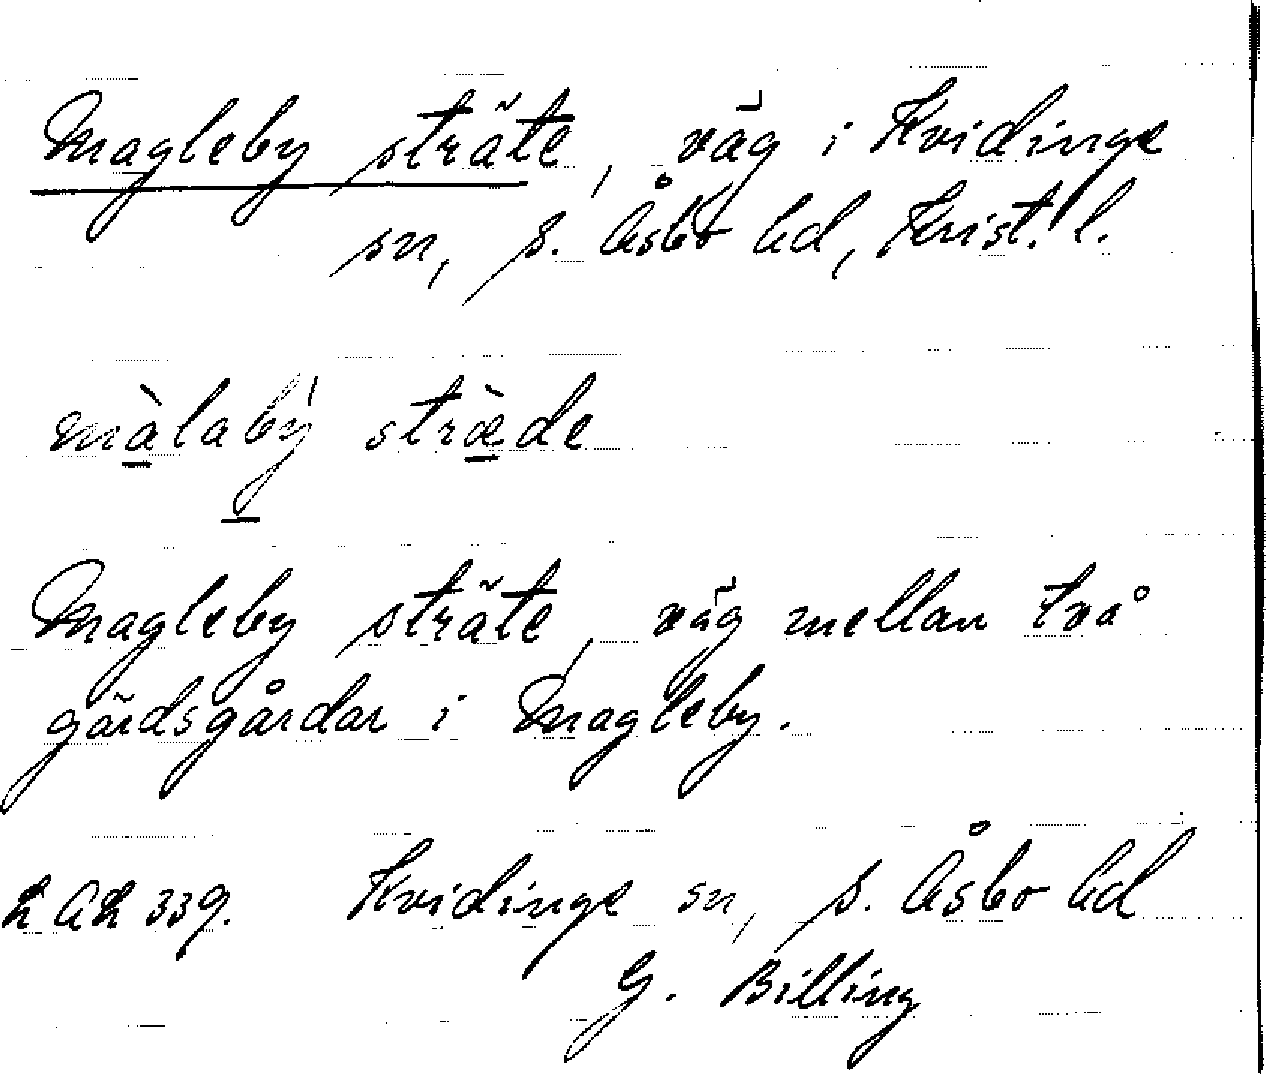 Magleby sträte, väg i Kvidinge
sn, S. Åsbo hd, Krist. l.
màlabý stræ̀de
Magleby sträte, väg mellan två
gärdsgårdar i Magleby.
LAL 339. Kvidinge sn, S. Åsbo hd
G. Billing